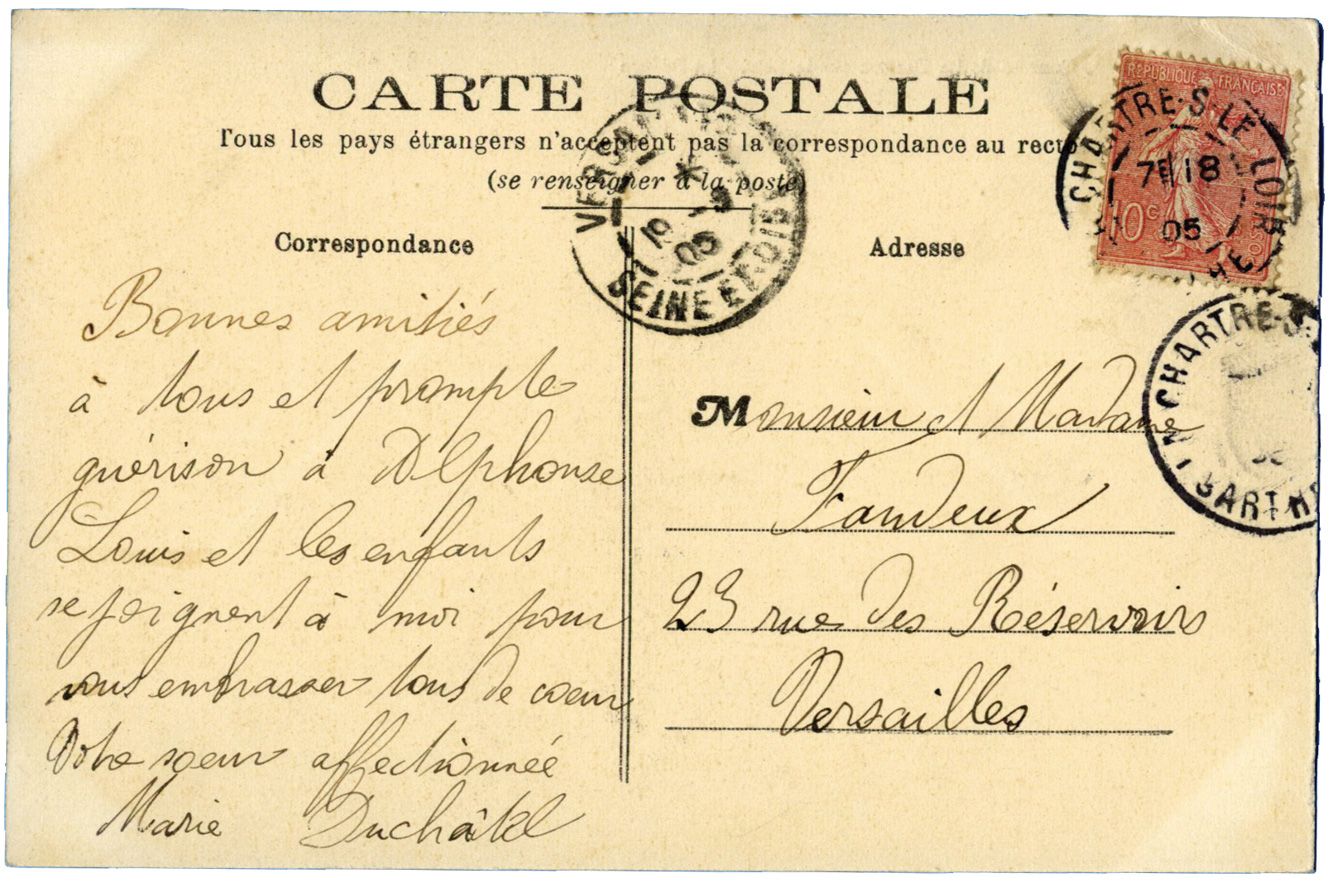 CARTE POSTALE
Tous les pays étrangers n'acceptent pas la correspondance au recto
(se renseigner à la poste)
Correspondance
Adresse
RÉPUBLIQUE FRANÇAISE
10c.
CHARTRE-S-LE LOIR
7E 18
05
VERSAILLES
19 -9
05
SEINE ET OISE
CHARTRE-S-
SARTHE
Bonnes amitiés
à tous et prompte
guérison à Alphonse
Louis et les enfants
se joignent à moi pour
vous embrasser tous de coeur
Votre soeur affectionnée
Marie Duchâtel
Monsieur et Madame
Fandeux
23 rue des Réservoirs
Versailles